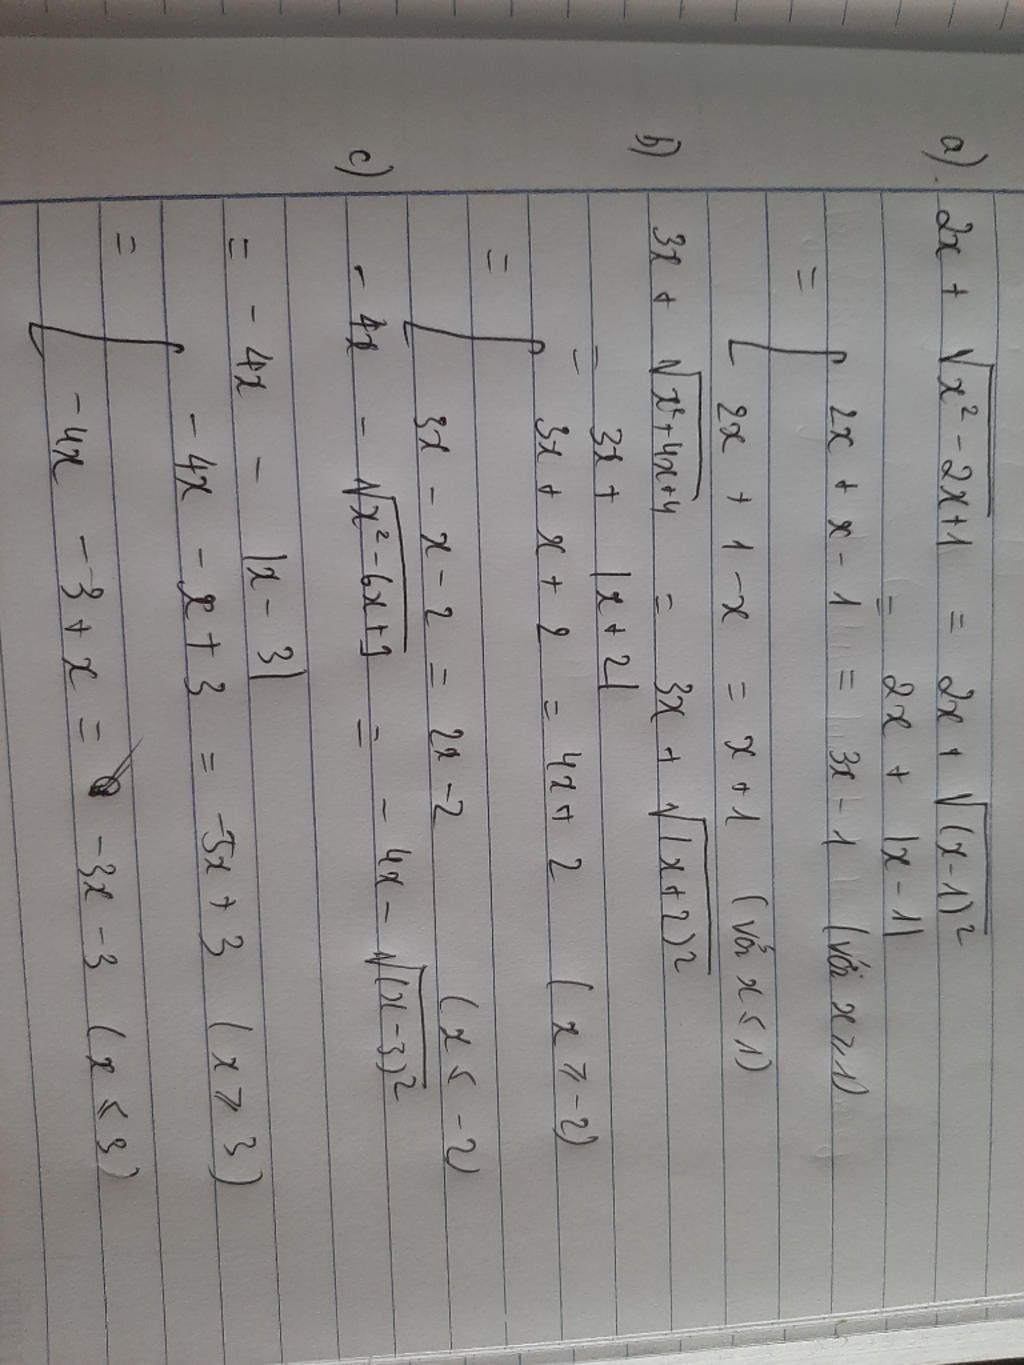 a) 2x + √(x² - 2x + 1) = 2x + √((x - 1)²)
= 2x + |x - 1|
= [ 2x + x - 1 = 3x - 1 (với x ≥ 1)
2x + 1 - x = x + 1 (với x ≤ 1)
b) 3x + √(x² + 4x + 4) = 3x + √((x + 2)²)
= 3x + |x + 2|
= [ = 3x + x + 2 = 4x + 2 (x ≥ -2)
3x - x - 2 = 2x - 2 (x ≤ -2)
c) - 4x - √(x² - 6x + 9) = - 4x - √((x - 3)²)
= - 4x - |x - 3|
= [ - 4x - x + 3 = -5x + 3 (x ≥ 3)
- 4x - 3 + x = - 3x - 3 (x ≤ 3)